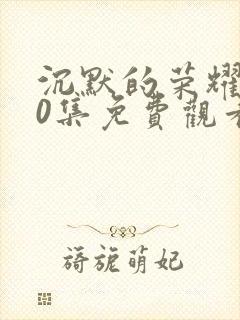 沉默的荣耀
0集免費觀看
旖旎萌妃